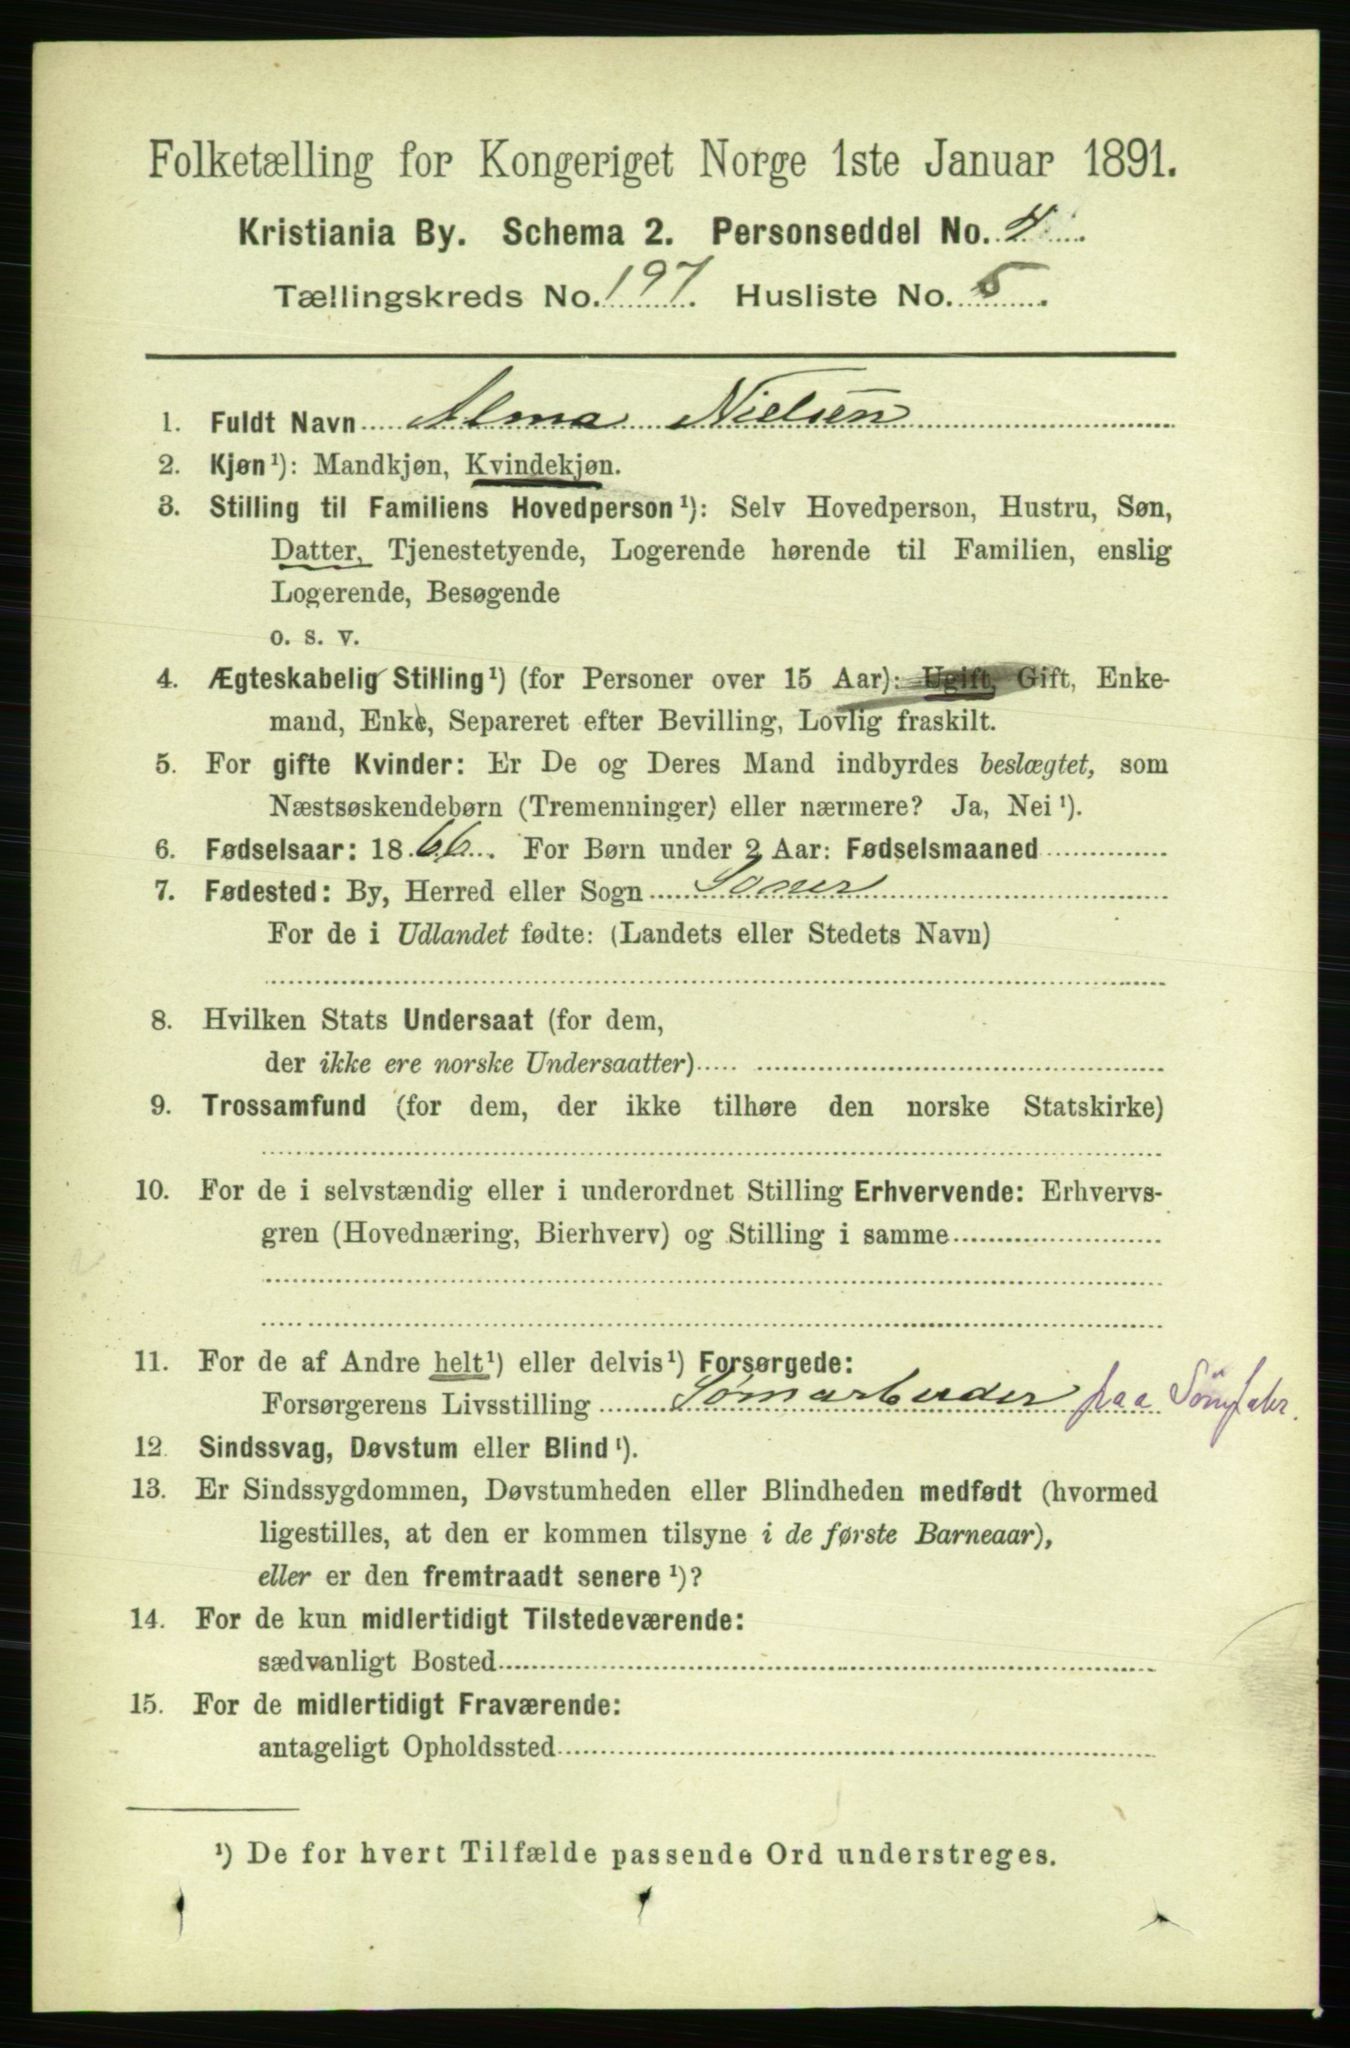 Folketælling for Kongeriget Norge 1ste Januar 1891.
Kristiania By. Schema 2. Personseddel No. 4.
Tællingskreds No. 197. Husliste No. 5.
1. Fuldt Navn Alma Nielsen
2. Kjøn¹): Mandkjøn, Kvindekjøn.
3. Stilling til Familiens Hovedperson¹): Selv Hovedperson, Hustru, Søn,
Datter, Tjenestetyende, Logerende hørende til Familien, enslig
Logerende, Besøgende
o. s. v.
4. Ægteskabelig Stilling¹) (for Personer over 15 Aar): Ugift, Gift, Enke-
mand, Enke, Separeret efter Bevilling, Lovlig fraskilt.
5. For gifte Kvinder: Er De og Deres Mand indbyrdes beslægtet, som
Næstsøskendebørn (Tremenninger) eller nærmere? Ja, Nei¹).
6. Fødselsaar: 1866. For Børn under 2 Aar: Fødselsmaaned
7. Fødested: By, Herred eller Sogn
For de i Udlandet fødte: (Landets eller Stedets Navn)
8. Hvilken Stats Undersaat (for dem,
der ikke ere norske Undersaatter)
9. Trossamfund (for dem, der ikke tilhøre den norske Statskirke)
10. For de i selvstændig eller i underordnet Stilling Erhvervende: Erhvervs-
gren (Hovednæring, Bierhverv) og Stilling i samme
11. For de af Andre helt¹) eller delvis¹) Forsørgede:
Forsørgerens Livsstilling Sømarbeider paa Sømfabr.
12. Sindssvag, Døvstum eller Blind¹).
13. Er Sindssygdommen, Døvstumheden eller Blindheden medfødt (hvormed
ligestilles, at den er kommen tilsyne i de første Barneaar),
eller er den fremtraadt senere¹)?
14. For de kun midlertidigt Tilstedeværende:
sædvanligt Bosted
15. For de midlertidigt Fraværende:
antageligt Opholdssted
¹) De for hvert Tilfælde passende Ord understreges.